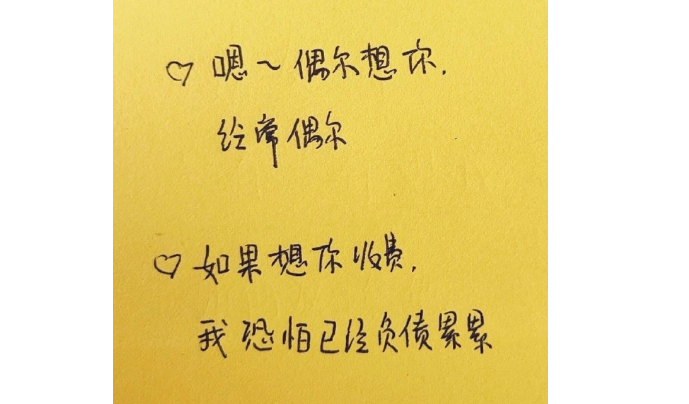 ♡ 嗯~偶尔想你,
经常偶尔
♡ 如果想你收费,
我恐怕已经负债累累